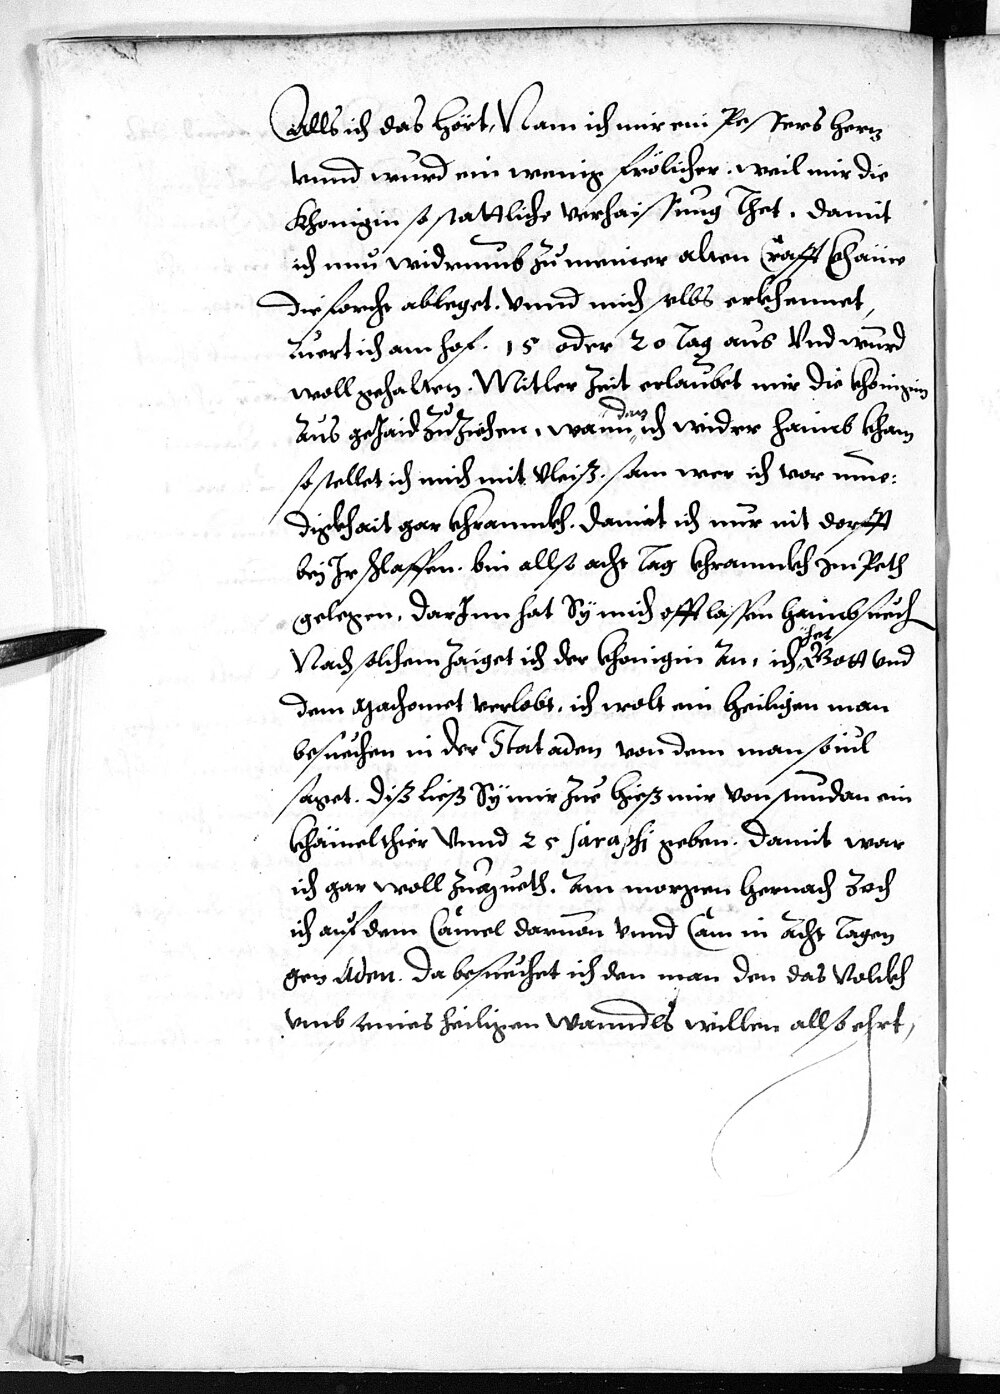 Alls ich das hört, Nam ich mir ein Pessers herz
vnnd wurd ein wenig frölicher. weil mir die
Khonigin so stattliche verhaissung Thet. damit
ich nun widrumb zu meiner alten Crafft khäme
die forcht ableget. vnnd mich selbs erkhennet,
wert ich am hof. 15 oder 20 tag aus Vnd wurd
woll gehalten. Mitler Zeit erlaubet mir die khönigin
aus geJaid zu Ziehen, wann dan ich wider haimb kham
so stellet ich mich mit vleiß. sam wer ich vor müe:
digkhait gar khrannkh. damit ich nur nit dorfft
bey Jr schlaffen. bin allso acht tag khrannkh im Peth
gelegen, darJnn hat Sy mich offt lassen haimbsuech
Nach solchem Zaiget ich der khonigin an, ich het Gott vnd
dem Machomet verlobt, ich wolt ein heiligen man
besuechen in der Stat aden von dem man so vil
saget. diß ließ Sy mir zue hieß mir von stundan ein
khämelthier vnnd 25 saraphi geben. damit war
ich gar woll zu mueth. Am morgen hernach zoch
ich auf dem Camel daruon vnnd Cam in acht tagen
gen Aden. Da besuechet ich den man den das volckh
vmb seines heiligen wanndls willen allso ehrt,